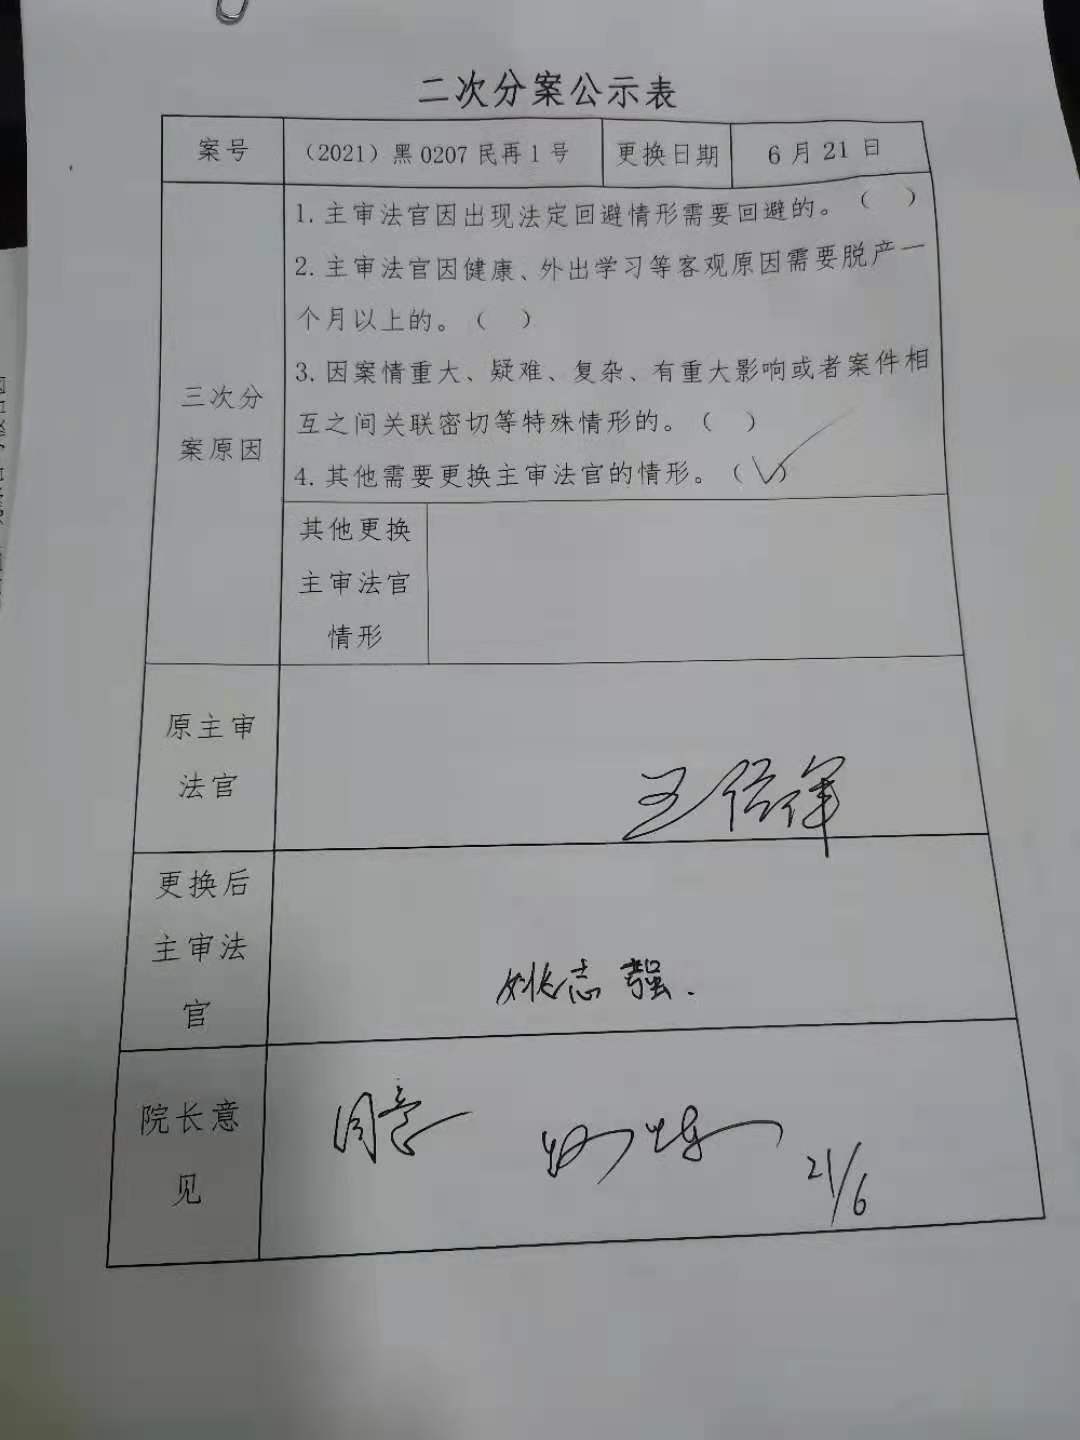 二次分案公示表
案号
（2021）黑 0207 民再 1 号
更换日期
6 月 21 日
三次分
案原因
1. 主审法官因出现法定回避情形需要回避的。（ ）
2. 主审法官因健康、外出学习等客观原因需要脱产一
个月以上的。（ ）
3. 因案情重大、疑难、复杂、有重大影响或者案件相
互之间关联密切等特殊情形的。（ ）
4. 其他需要更换主审法官的情形。（✓）
其他更换
主审法官
情形
原主审
法官
更换后
主审法
官
姚志强.
院长意
见
同意
21/6